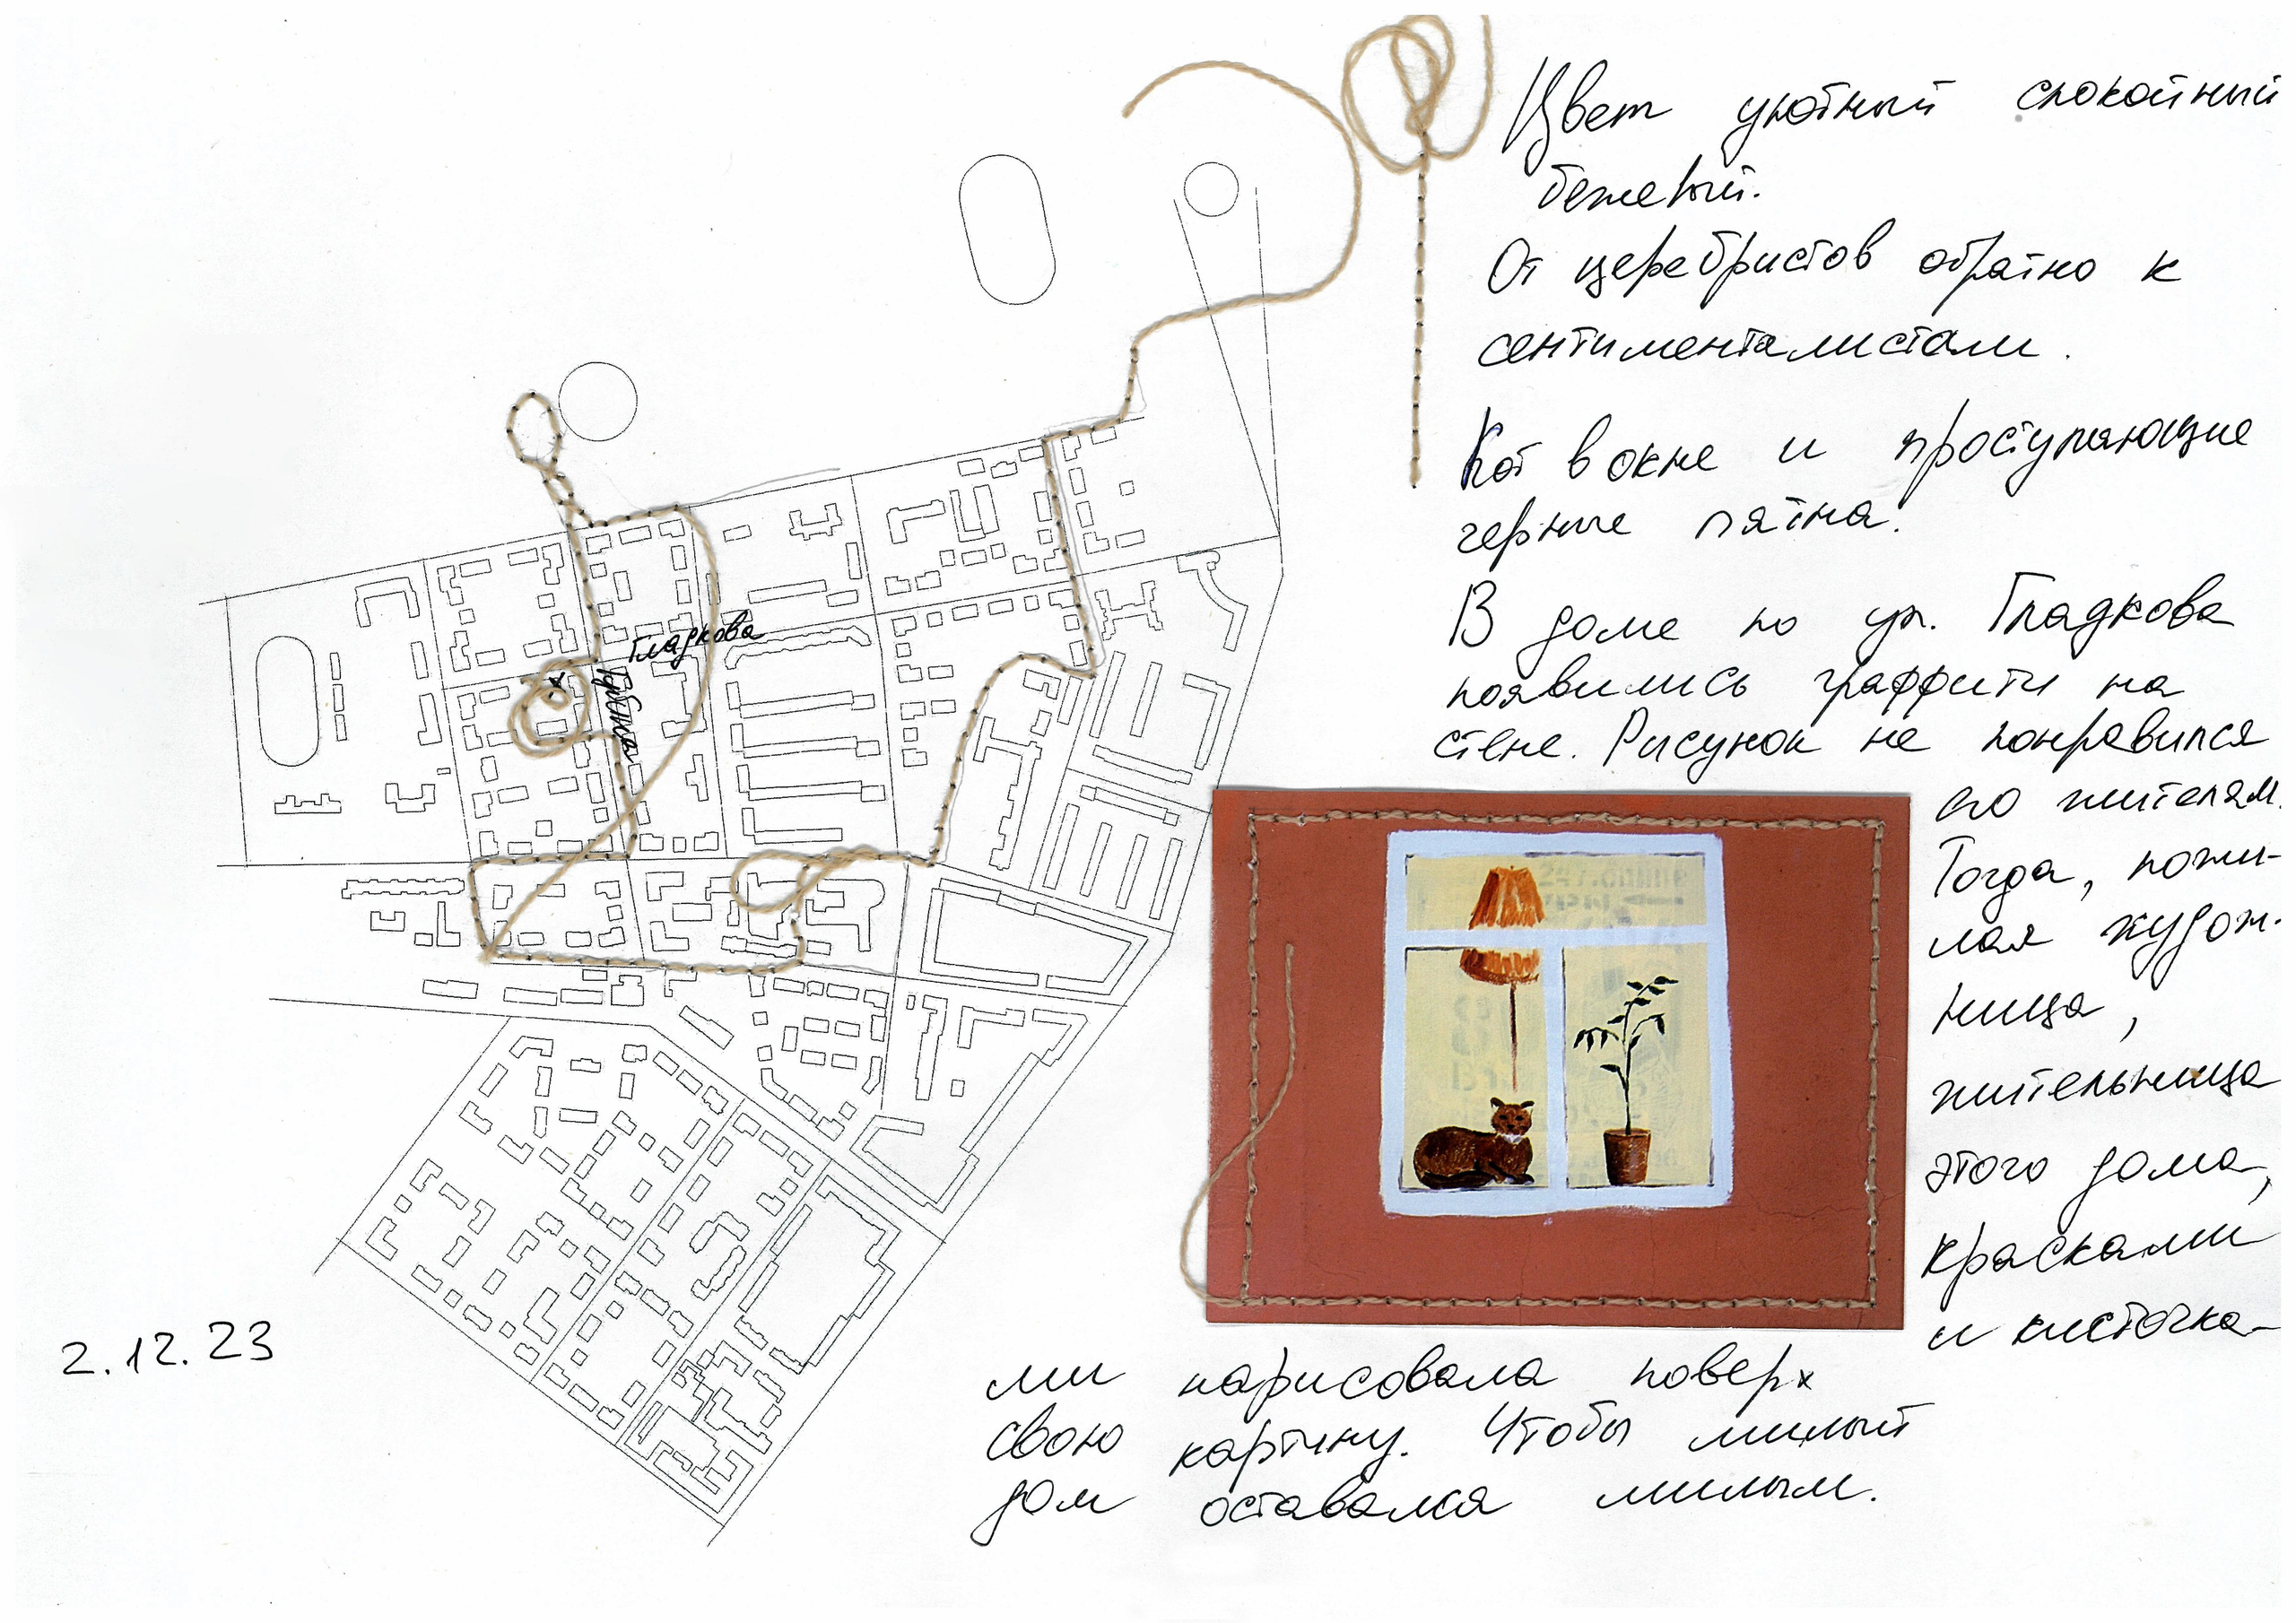 Цвет уютный спокойный
бежевый.
От церебристов обратно к
сентименталистам.
Кот в окне и проступающие
черные пятна.
В доме по ул. Гладкова
появились граффити на
стене. Рисунок не понравился
его жителям.
Тогда, пожи-
лая худож-
ница,
жительница
этого дома,
красками
и кисточка-
ми нарисовала поверх
свою картину. Чтобы милый
дом оставался милым.
Гладкова
Губкина
2.12.23